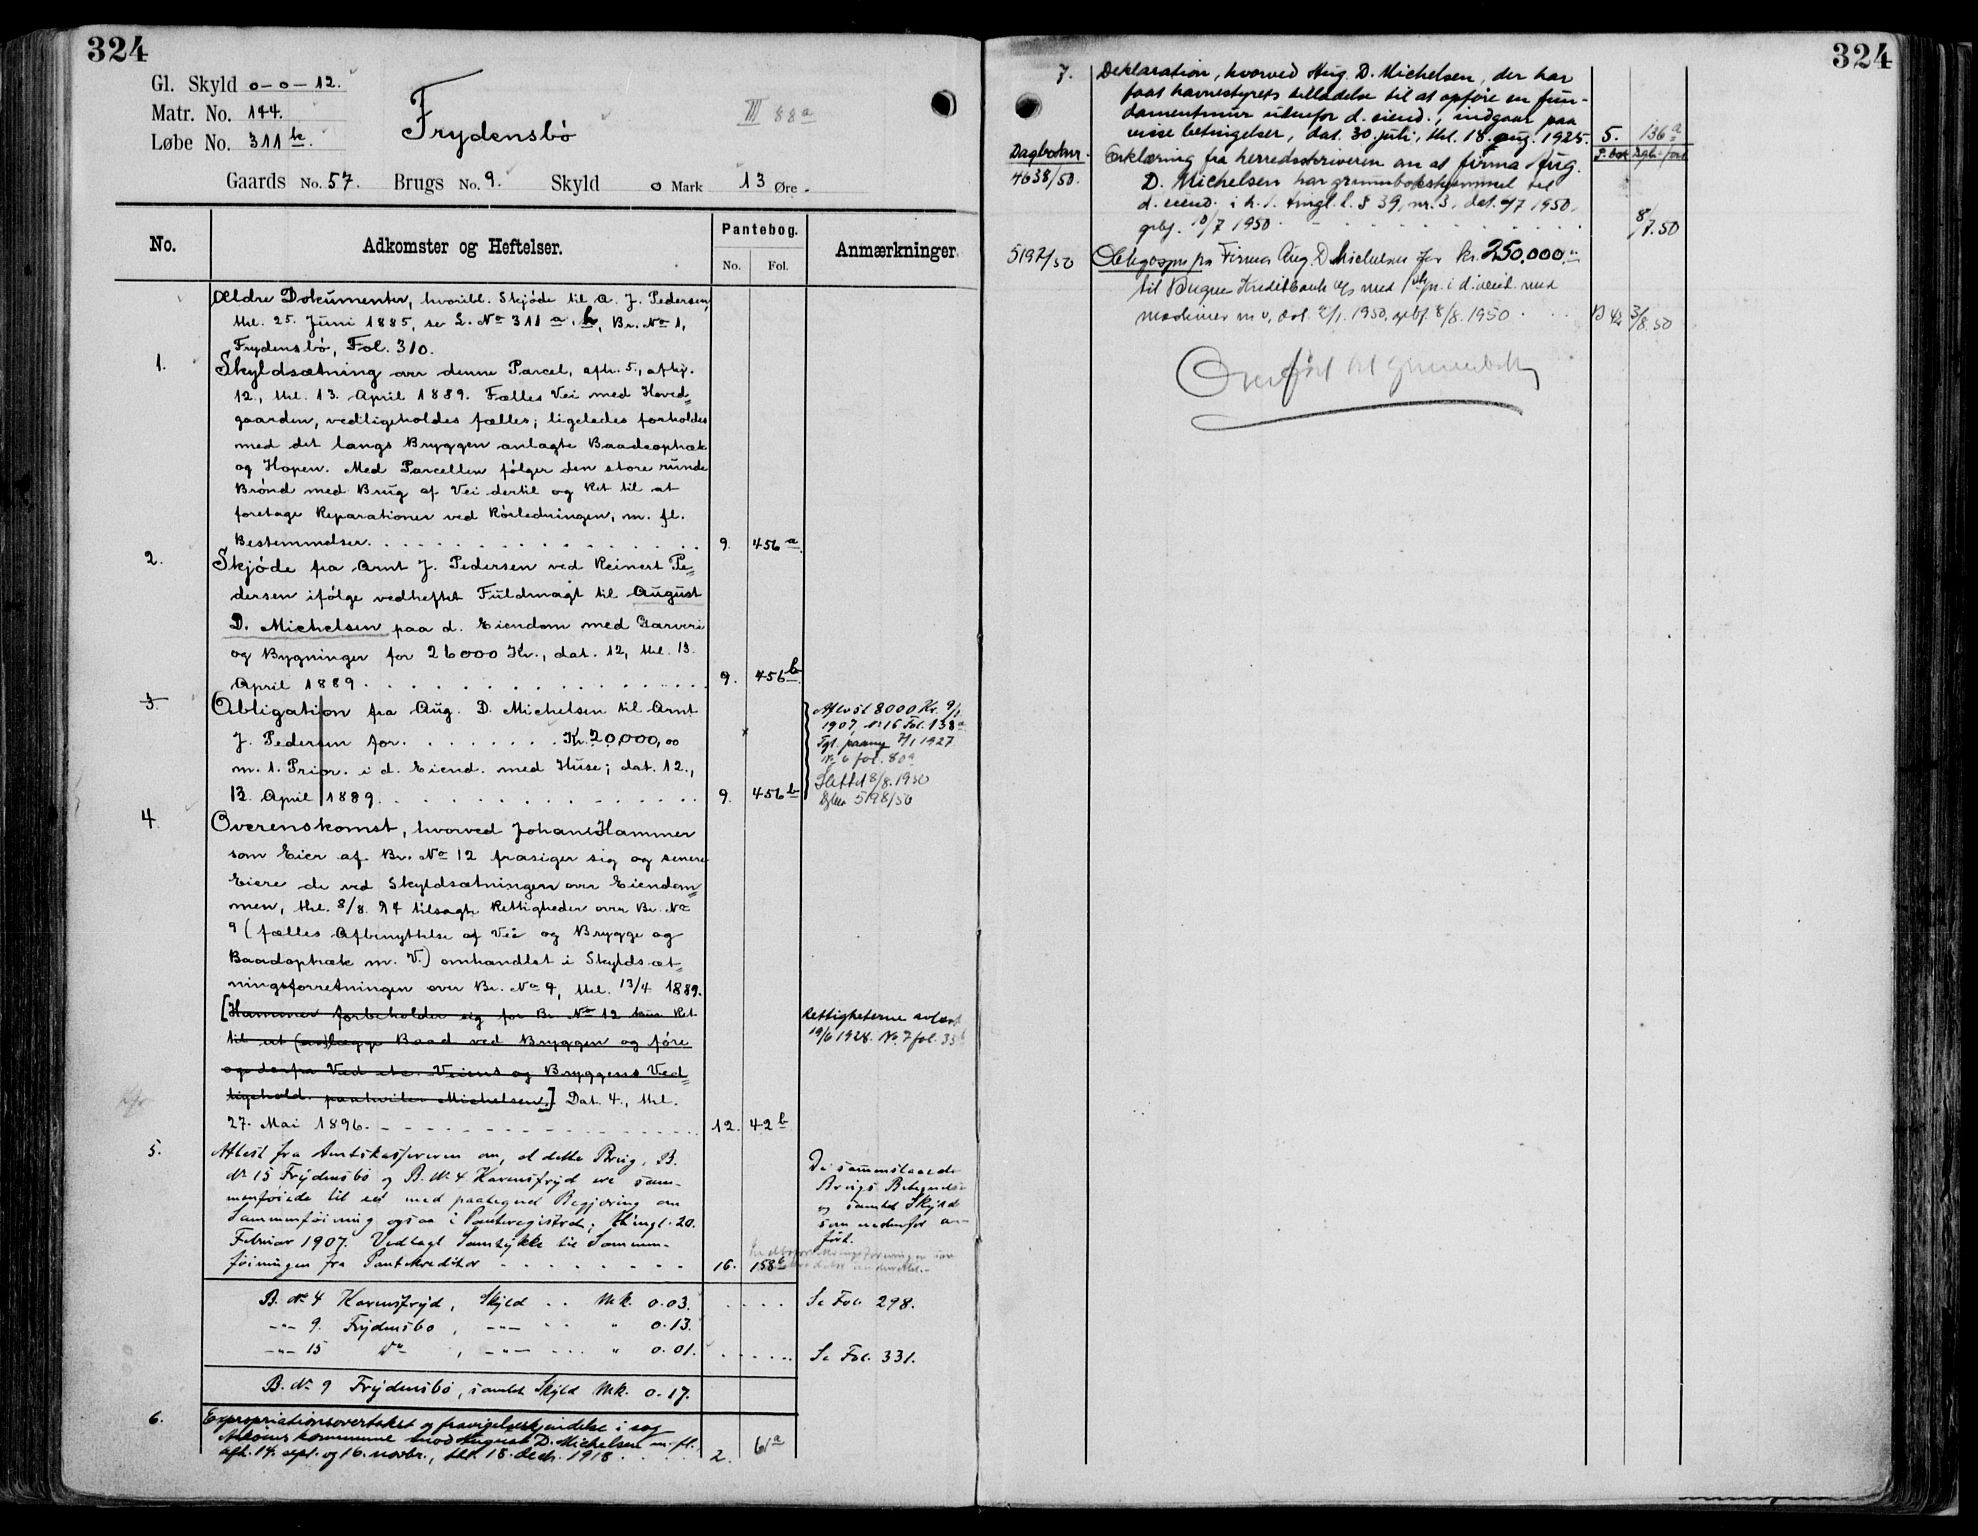 324
Gl. Skyld 0-0-12.
Matr. No. 144.
Løbe No. 311 k.
Frydensbö
III 88a
Gaards No. 57. Brugs No. 9. Skyld 0 Mark 13 Øre.
No.
Adkomster og Heftelser.
Pantebog.
No. Fol.
Anmærkninger.
Ældre Dokumenter, hvoribl. Skjöde til A. J. Pedersen,
thl. 25. Juni 1885, se L. No 311 a, b, Br. No 1,
Frydensbö, Fol. 310.
1. Skyldsætning over denne Parcel, afh. 5., afhj.
12., thl. 13. April 1889. Fælles Vei med Hoved=
gaarden, vedligeholdes fælles; ligeledes forholdes
med det langs Bryggen anlagte Baadeoptræk
og Hopen. Med Parcellen fölger den store runde
Brönd med Brug af Vei dertil og Ret til at
foretage Reparationer ved Rörledningen, m. fl.
Bestemmelser. 9. 456 a
2. Skjöde fra Arnt J. Pedersen ved Reinert Pe=
dersen ifölge vedheftet Fuldmagt til August
D. Michelsen paa d. Eiendom med Garveri
og Bygninger for 26000 Kr., dat. 12, thl. 13.
April 1889. 9. 456 b
3. Obligation fra Aug. D. Michelsen til Arnt
J. Pedersen for. Kr. 20,000,00
m. 1. Prior. i d. Eiend. med Huse; dat. 12.,
13. April 1889. 9. 456 b
Aflöst 8000 Kr. 9/1
1907, N 16 Fol. 138 a
Tgl. paany 7/1 1927
N. 6 fol. 80a
Slettet 8/8. 1950
Dgbnr 5198/50
4. Overenskomst, hvorved Johan Hammer
som Eier af Br. No 12 frasiger sig og senere
Eiere de ved Skyldsætningen over Eiendom=
men, thl. 8/8. 94 tilsagte Rettigheder over Br. No
9 (fælles Afbenyttelse af Vei og Brygge og
Baadoptræk m. V.) omhandlet i Skyldsæt=
ningsforretningen over Br. No 9, thl. 13/4 1889.
[Hammer forbeholder sig for Br No 12 Ret
til at lægge Baad ved Bryggen og före
op derfra Ved etc. Veiens og Bryggens Ved=
ligehold paahviler Michelsen.] Dat. 4., thl.
27. Mai 1896. 12. 42 b
Rettigheterne avløst
19/6 1928. No. 7 fol. 33
5. Attest fra Amtskassereren om, at dette Brug, B.
No 15 Frydensbö og B. No 4 Havensfryd ere sam-
menföiede til et med paategnet Begjæring om
Sammenföining ogsaa i Panteregistret; thingl. 20.
Februar 1907. Vedlagt Samtykke til Sammen-
föiningen fra Pantekreditor 16. 158 a
De sammenslaaede
Brugs Betegnelse
og samlet Skyld
som nedenfor an-
fört.
B. No 4 Havensfryd, Skyld .. Mk. 0.03. Se Fol. 298.
-"- 9. Frydensbö, -"- .. " 0.13.
-"- 15 Do, -"- ... " 0.01. Se Fol. 331.
B. No 9 Frydensbö, samlet Skyld Mk. 0.17.
6. Expropriationsovertakst og fravigelseskjendelse i sag
kommune mod August D. Michelsen m. fl.
afh. 14. sept. og 16. novbr., thl. 18. decb. 1918. 2. 61 a
324
7. Deklaration, hvorved Aug. D. Michelsen, der har
faat havnestyrets tilladelse til at opføre en fun-
damentmur utenfor d. eiend., indgaar paa
visse betingelser, dat. 30. juli, thl. 18. aug. 1925. 5. 136 a
Dagboknr. P. bok Dgb. ført
4638/50. Erklæring fra herredsskriveren om at firma Aug.
D. Michelsen har grunnbokshjemmel til
d. eiend. i h. t. tingl. l. § 39, nr. 3, dat. 9/7 1950,
grbf. 10/7 1950 8/7.50
5197/50 Obligasjon fra Firma Aug. D. Michelsen for kr. 250.000,-
til Bergens Kreditbank A/S med 1 pr. i d. eiend. med
maskiner m v, dat. 2/1. 1950, grbf. 8/8. 1950 B 42 3/8.50
Overført til grunnbok